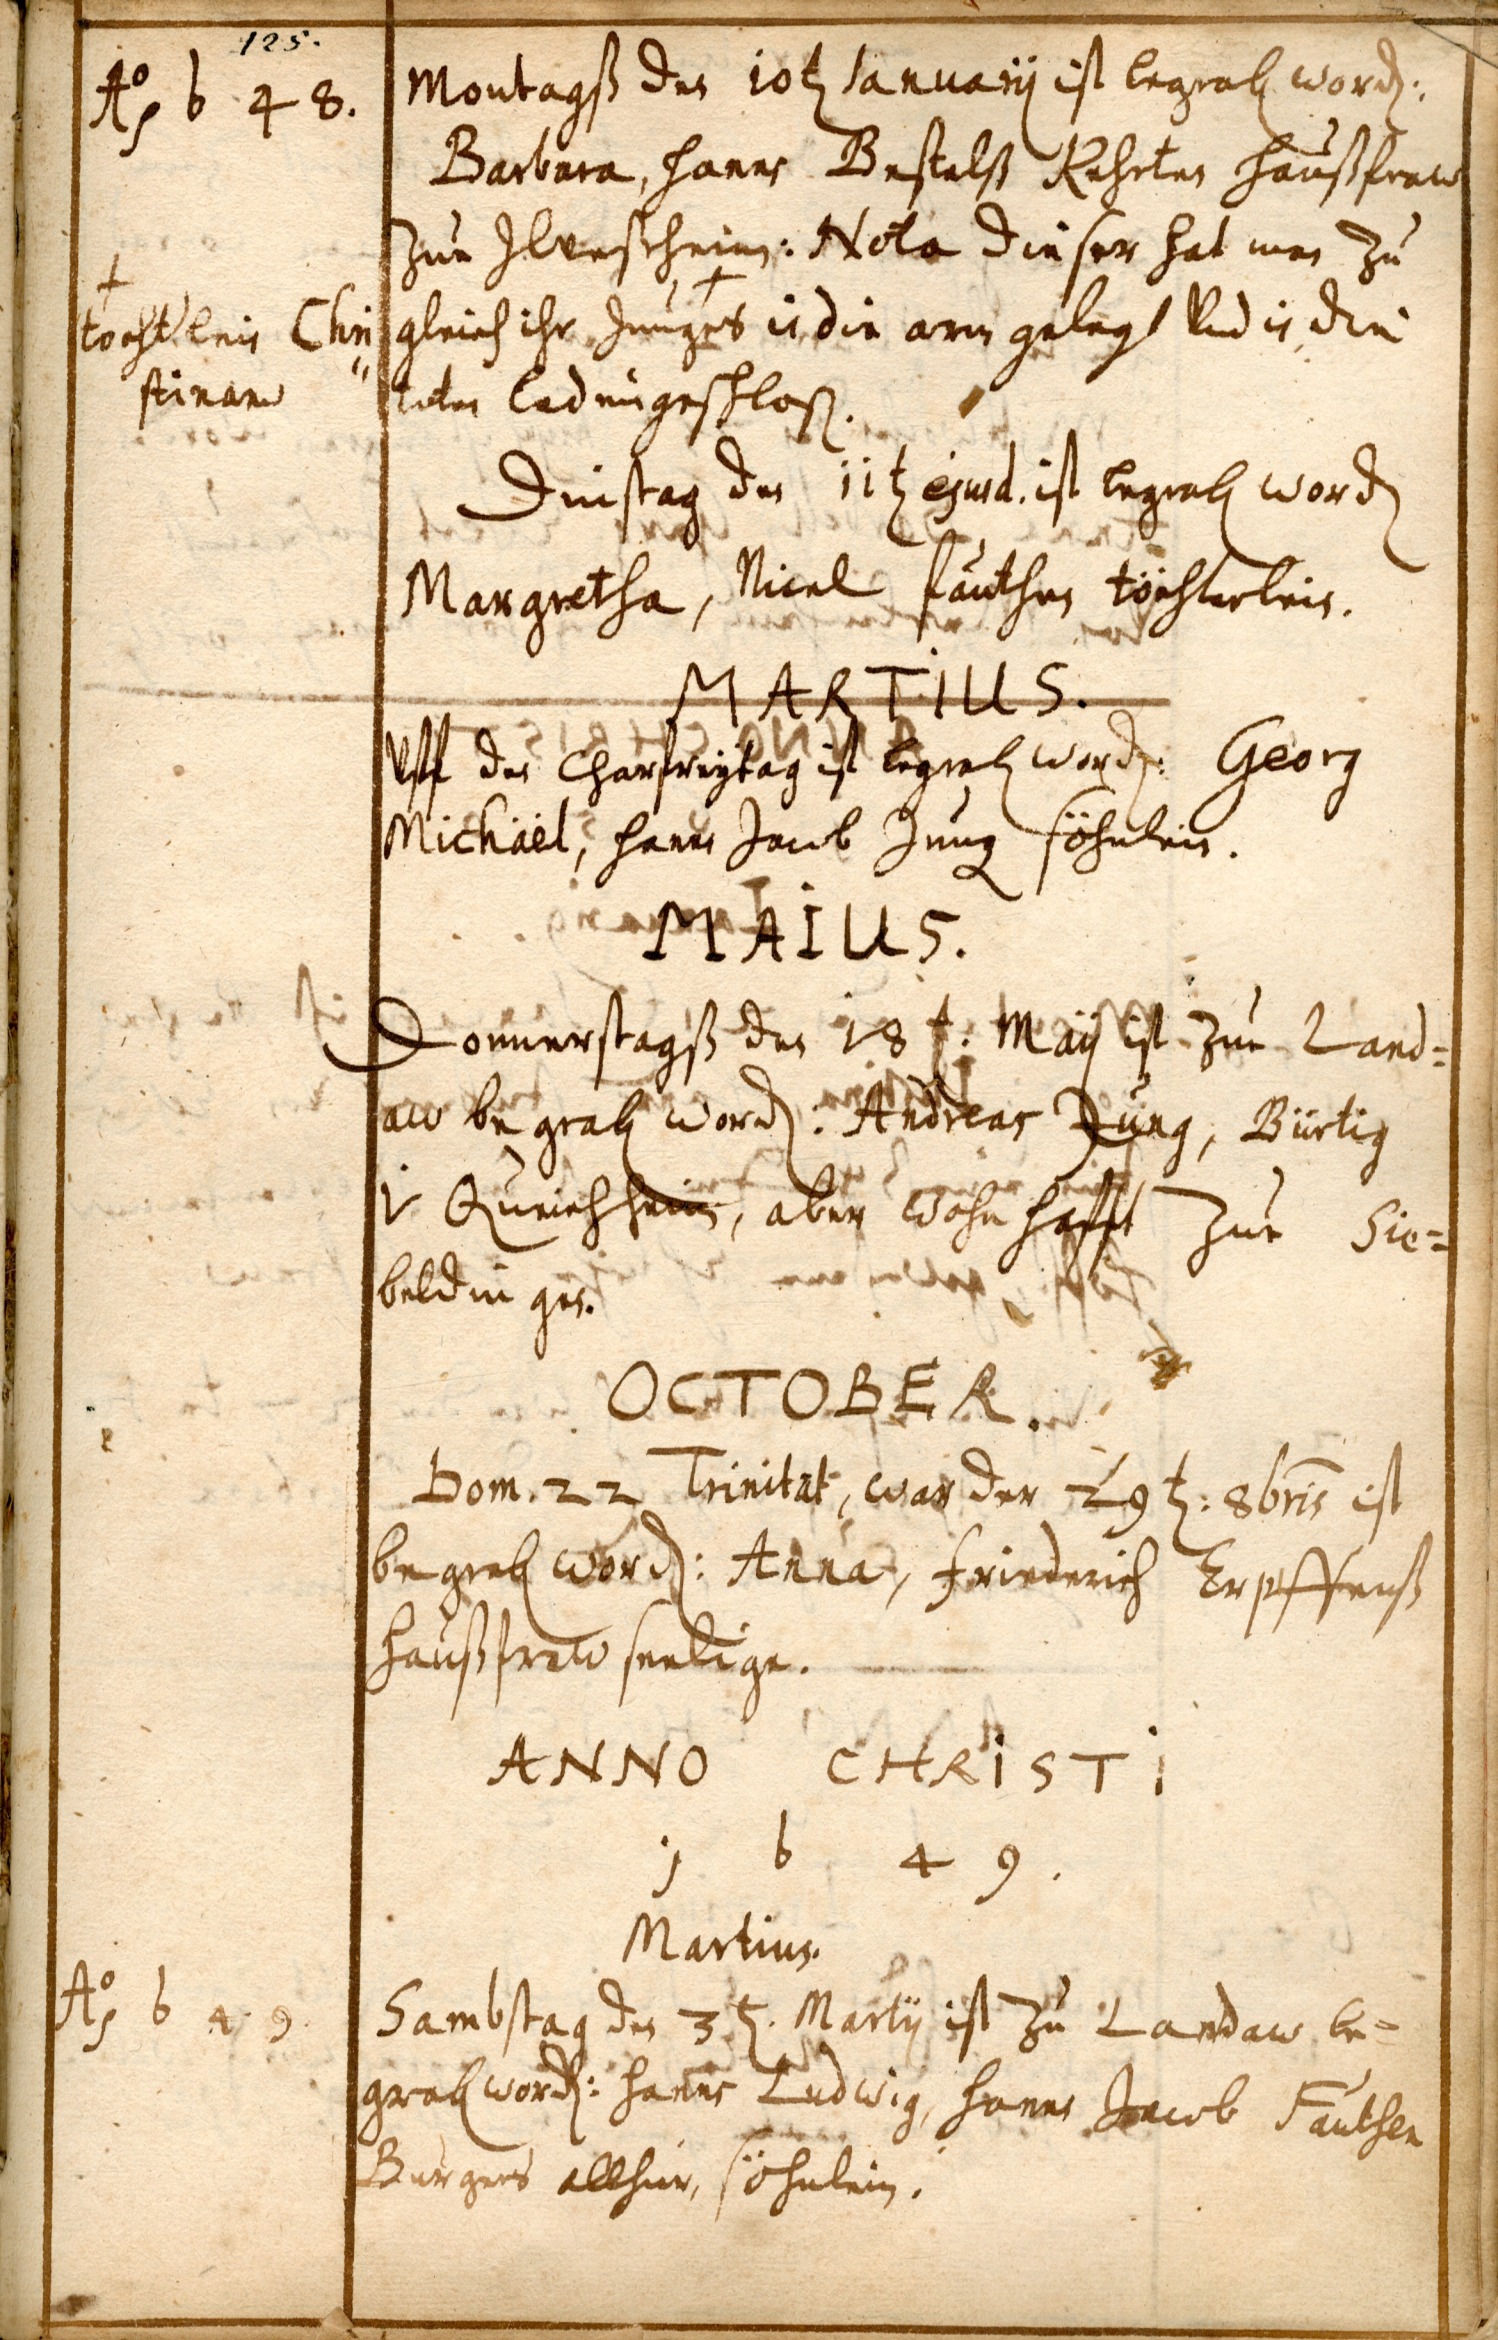 125.
Aō 1648.
Montagß den 10t Januarij ist begrab word:
Barbara, Hanns Bestelß Kehrten Haußfraw
zue Ilbeßheim: Nota dieser hat man zu
+
töchtlein Chri
stinam
gleich ihr Junges + in die arm gelegt Und in die
toten lad eingeschloß.
Dinstag den 11t ejusd. ist begrab word
Margretha, Nicel Fauthen töchterlein.
MARTIUS.
Uff den Charfreytag ist begrab word: Georg
Michäel, Hanns Jacob Jung söhnlein.
MAIUS.
Donnerstagß den 18t. Maij ist zue Land=
aw begrab word: Andreas Jung, Bürtig
v Queichheim, aber wohnhafft zue Sie=
beldingen.
OCTOBER.
Dom. 22 Trinitat, war der 29t: 8bris ist
begrab word: Anna, Friederich Erpffenß
Haußfraw seelige.
ANNO CHRISTI
1649.
Martius.
Aō 1649.
Sambstag den 3t. Martij ist zu Landaw be=
grab word: Hanns Ludwig, Hanns Jacob Fauthen
Burgers allhier, söhnlein.